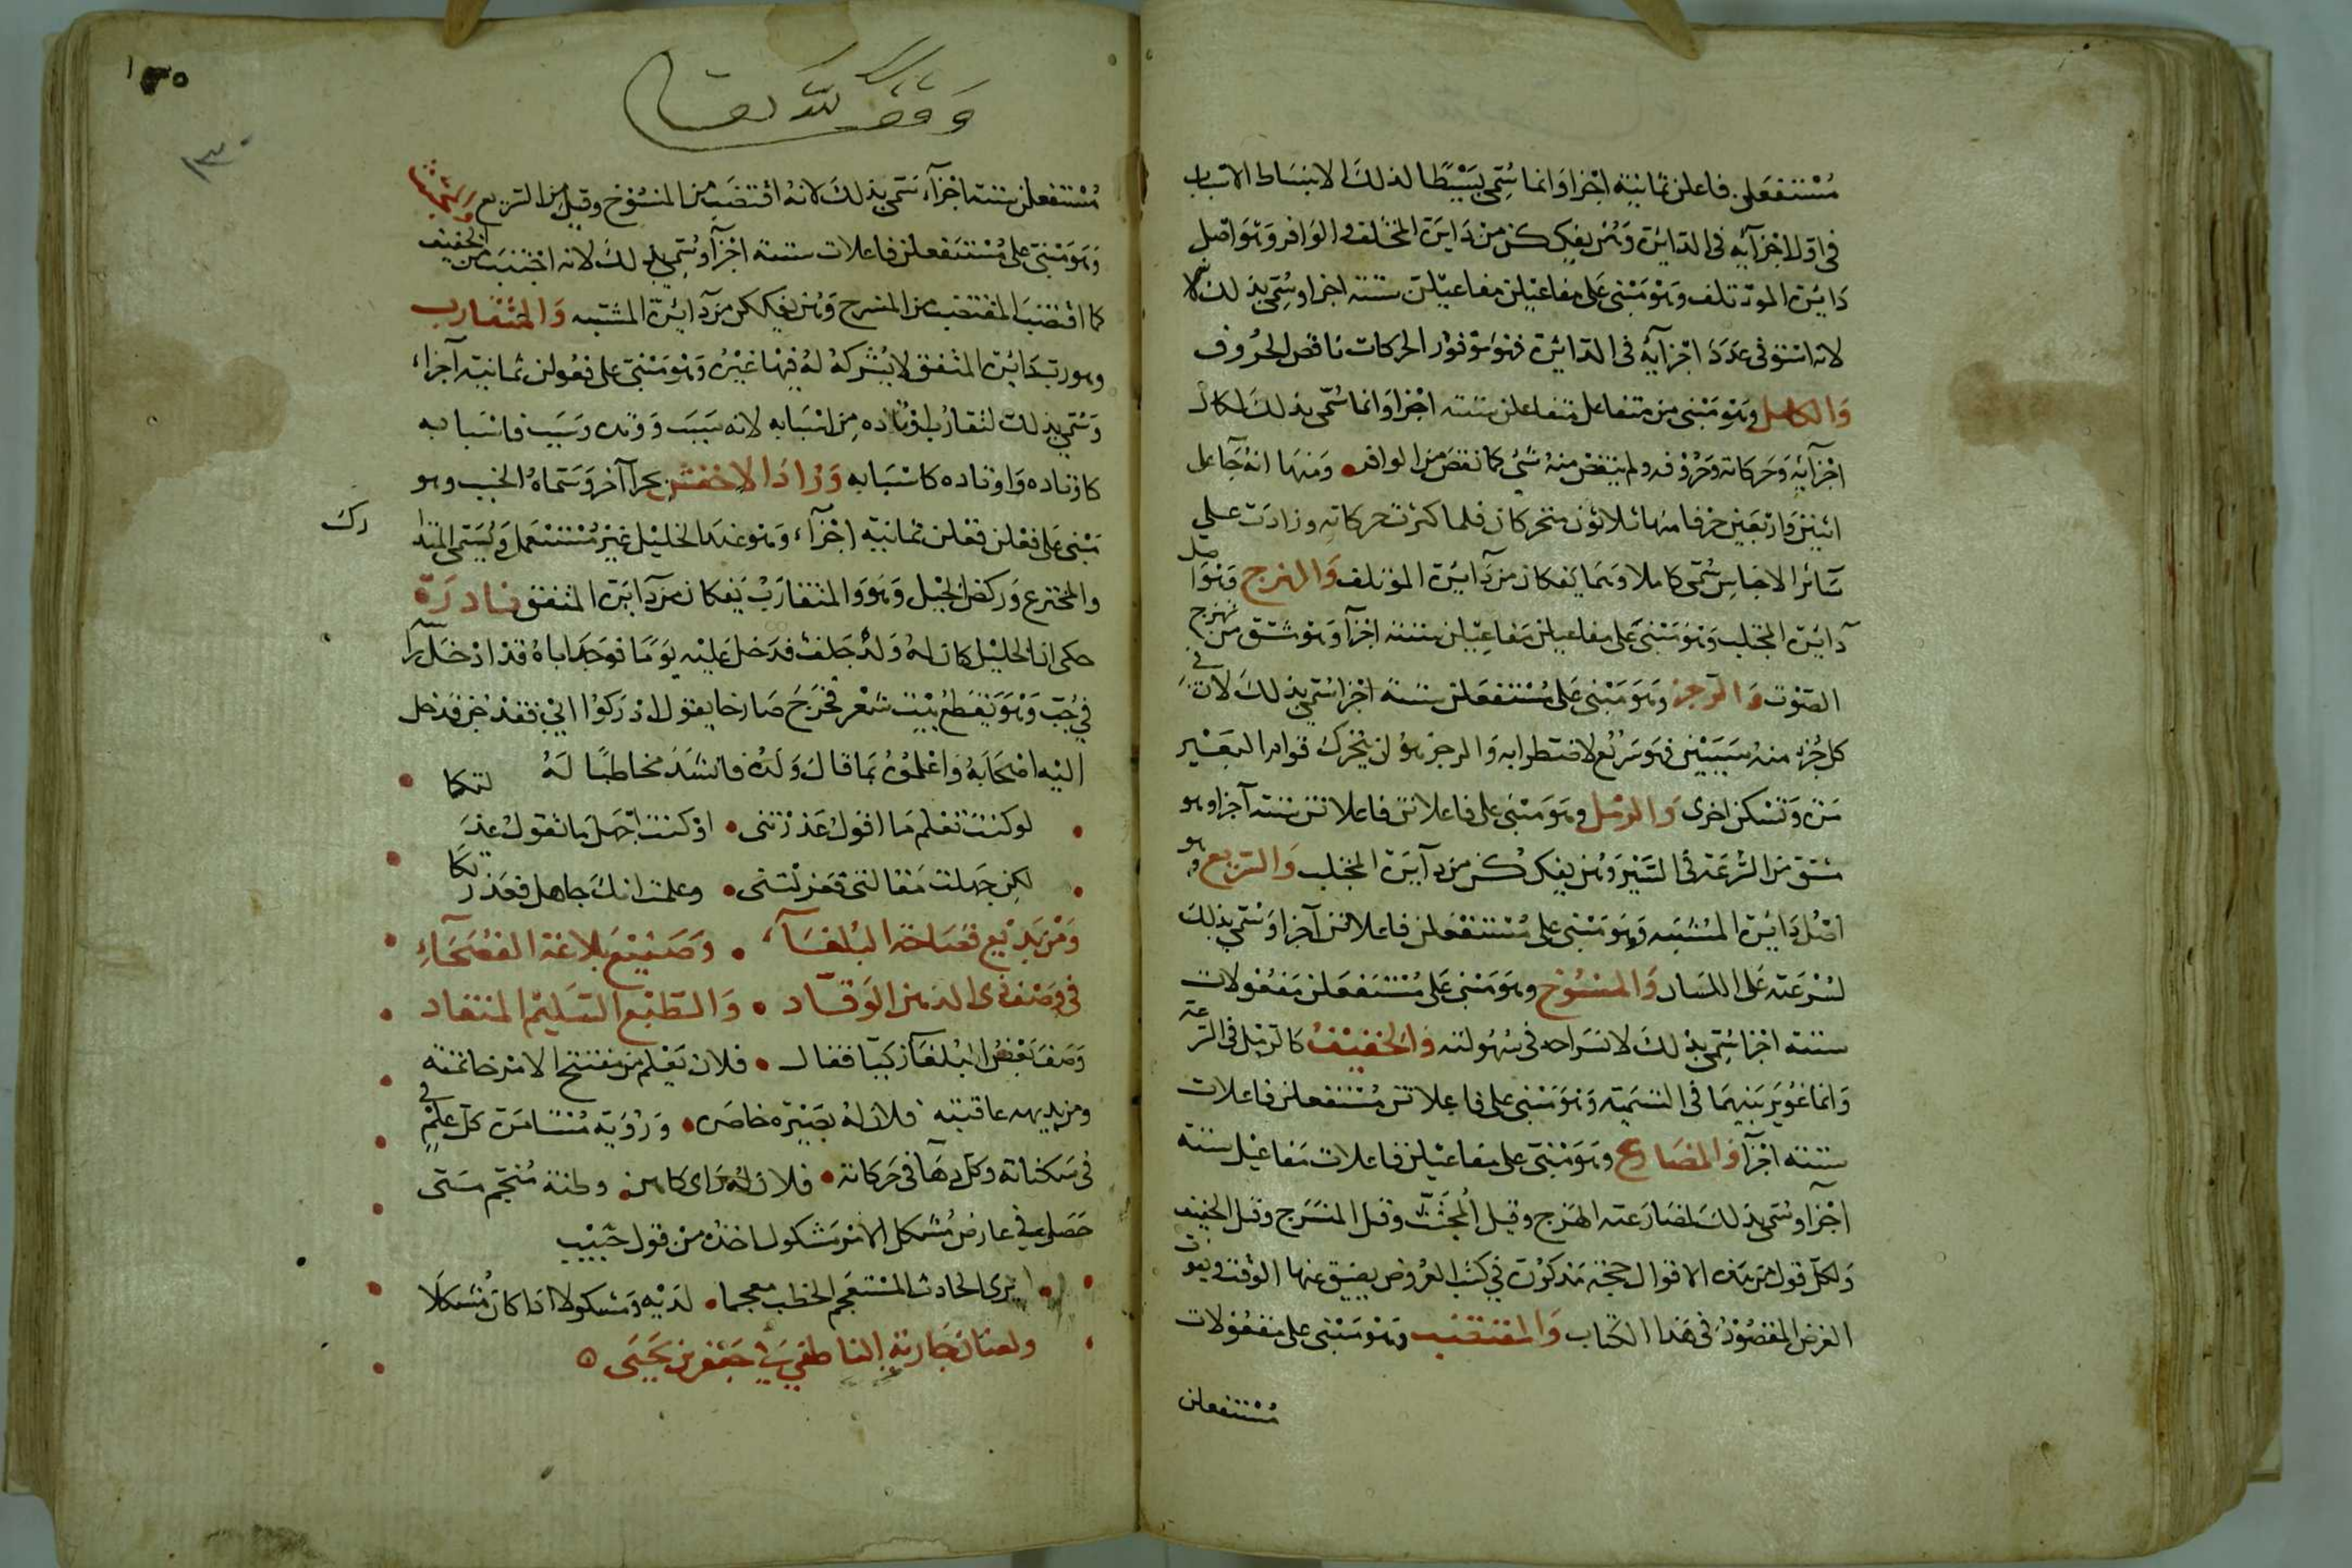 مستفعلن فاعلن ثمانية اجزا وانما سُمّي بسيطا لذلك لانبساط الاسباب
في اوّل اجزآيه في الدايرة وهُن يفككن من دايرة المختلف و الوافر وهو اصل
دايرة الموتلف وهو مبنى على مفاعيلن مفاعيلن ستته اجزا وسُمّي بذلك
لانه استوفى عدد اجزآيه في الدائرة فهو موفور الحركات ناقص الحروف
والكامل وهو مبنى من متفاعل متفاعلن ستته اجزا وانما سُمّى بذلك لكمال
اجزآيه وحركاته وحروفه ولم ينقص منه شئ كما نقص من الوافر ومنها انه جا على
اثنين واربعين حرفا منها ثلاثون متحركا فلما كثرت حركاته وزادت على
سآئر الاجناس سُمّى كاملا وهما يفكان من دآيرة المؤتلف والهزج وهو اصل
دآيرة المجتلب وهو مبنى على مفاعيلن مفاعيلن ستته اجزآ وهو مشتق من تهزج
الصوت والرجز وهو مبنى على مستفعلن ستة اجزا سُمّي بذلك لان في
كل جُزء منه سببين فهو سريع لاضطرابه والرجز هو ان يُحرك قوام البعير
مرّة وتسكن اخرى والرمل وهو مبنى على فاعلاتن فاعلاتن ستته آجزا وهو
مشتق من السرعة في السّير وهن يفككن من دآيرة المجتلب والسريع وهو
اصل دايرة المشتبه وهو مبنى على مستفعلن فاعلاتن آجزا وسُمّي بذلك
لسرعته على اللسان والمنسوخ وهو مبنى على مستفعلن مفعولات
ستته اجزا سُمّي بذلك لانسراحه في سهولته والخفيف كالرمل في السرعة
وانما غوير بينهما في التسمية وهو مبنى على فاعلاتن مستفعلن فاعلات
ستته اجزآ والمضارع وهو مبنى على مفاعيلن فاعلات مفاعيل ستة
اجزآ وسُمّى بذلك لمضارعته الهزج وقيل المجتث وقيل المنسرج وقيل الخفيف
ولكل قول من هذه الاقوال حجة مذكورة في كتب العروض يضيق عنها الوقت ويفوت
الغرض المقصود في هذا الكتاب والمقتضب وهو مبنى على مفعولات
مستفعلن
وقف لله تعالى
١٣٥
١٣٠
مستفعلن ستته اجزآء سمى بذلك لانه اقتضب من المنسوخ وقيل من السريع والمجتث
وهو مبنى على مستفعلن فاعلات ستته اجزآ وسُمّي بذلك لانه اجتنب من الخفيف
كما اقتضب المقتضب من المنسرح وهن يفككن من دآيرة المشتبه والمتقارب
وهو رب دائرة المتفق لا يشركه له فيها غيره وهو مبنى على فعولن ثمانية آجزاء
وسُمّي بذلك لتقارب اوتاده من اسبابه لانه سبب ووتد وسبب فاسبابه
كاوتاده واوتاده كاسبابه وزاد الاخفش بحرا آخر وسماه الخبب وهو
مبنى على فعلن فعلن ثمانية اجزآء وهو عند الخليل غير مستعمل ويسمى المتدارك
والمخترع وركض الخيل وهو والمتقارب يفكان من دآيرة المتفق نادرة
حكى ان الخليل كان له ولد جلف فدخل عليه يوما فوجد اباه قد ادخل راسه
في جُبّ وهو يقطع بيت شعر فخرج صارخا يقول ادركوا ابي فقد جُن فدخل
اليه اصحابه واعلموه بما قال ولده فانشد مخاطبا له
لو كنت تعلم ما اقول عذرتنى اوكنت اجهل ما تقول عذلتكا
لكن جهلت مقالتى فعزلتنى وعلمت انك جاهل فعذرتكا
ومن بديع فصاحة البلغآء وصنيع بلاغة الفصحآء
في وصف ذى الذهن الوقاد والطبع السليم المنقاد
وصف بعض البلغآ زكيّا فقال فلان يعلم من مفتتح الامر خاتمته
ومن بديهه عاقبته فلان له بصيرة خاصة ورؤية مستامرة كل علم في
في سكناته وكل دهآ في حركاته فلان له راى كاهن وطنة منجم متى
حصل في عارض مشكل الامر مشكول اخذه من قول حبيب
يرى الحادث المستعجم الخطب معجما لديه ومشكولا اذا كان مُشكلا
ولعنان جارية الناطفي في جعفر بن يحيى